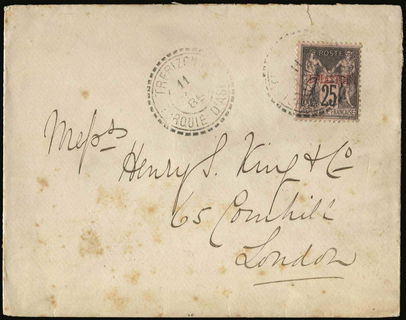 TREBIZONDE
11
84
TURQUIE D'ASIE
POSTE
25
FRANÇAISE
Mess<sup>rs</sup>
Henry S. King & Co
65 Cornhill
London